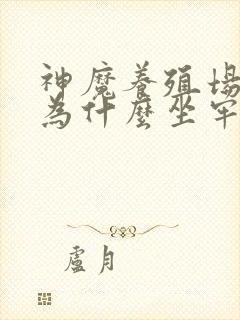 神魔養殖場
為什麼坐牢
盧月